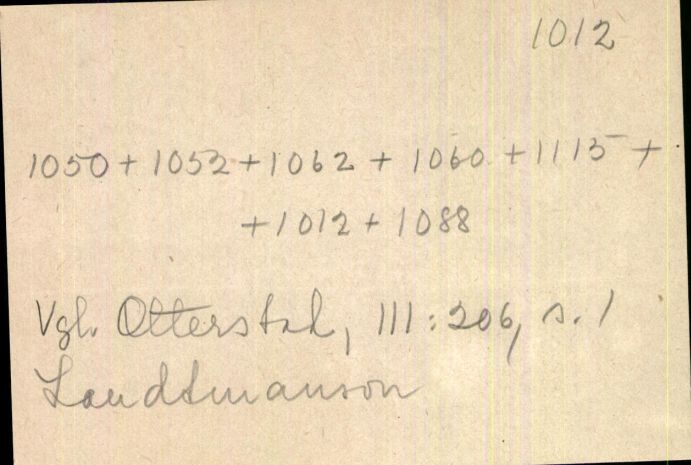 1012
1050 + 1052 + 1062 + 1060 + 1115 +
+ 1012 + 1088
Vgl. Otterstad, III:206, s. 1
Landtmanson